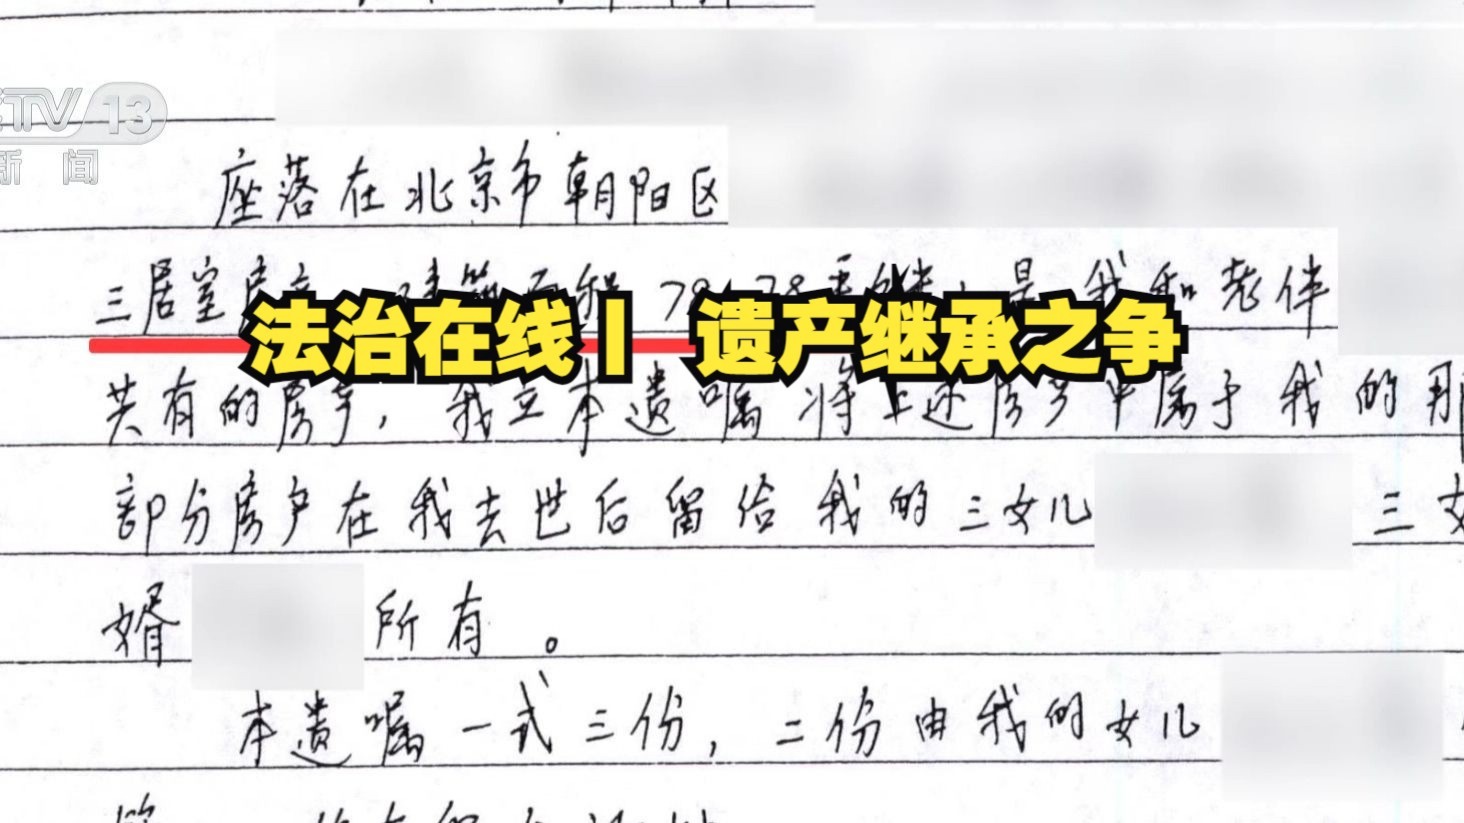 CCTV 13
新闻
座落在北京市朝阳区
三居室 是我和老伴
法治在线丨 遗产继承之争
共有的房产，我立本遗嘱将上述房产中属于我的那
部分房产在我去世后留给我的三女儿 三女
婿 所有。
本遗嘱一式三份，二份由我的女儿